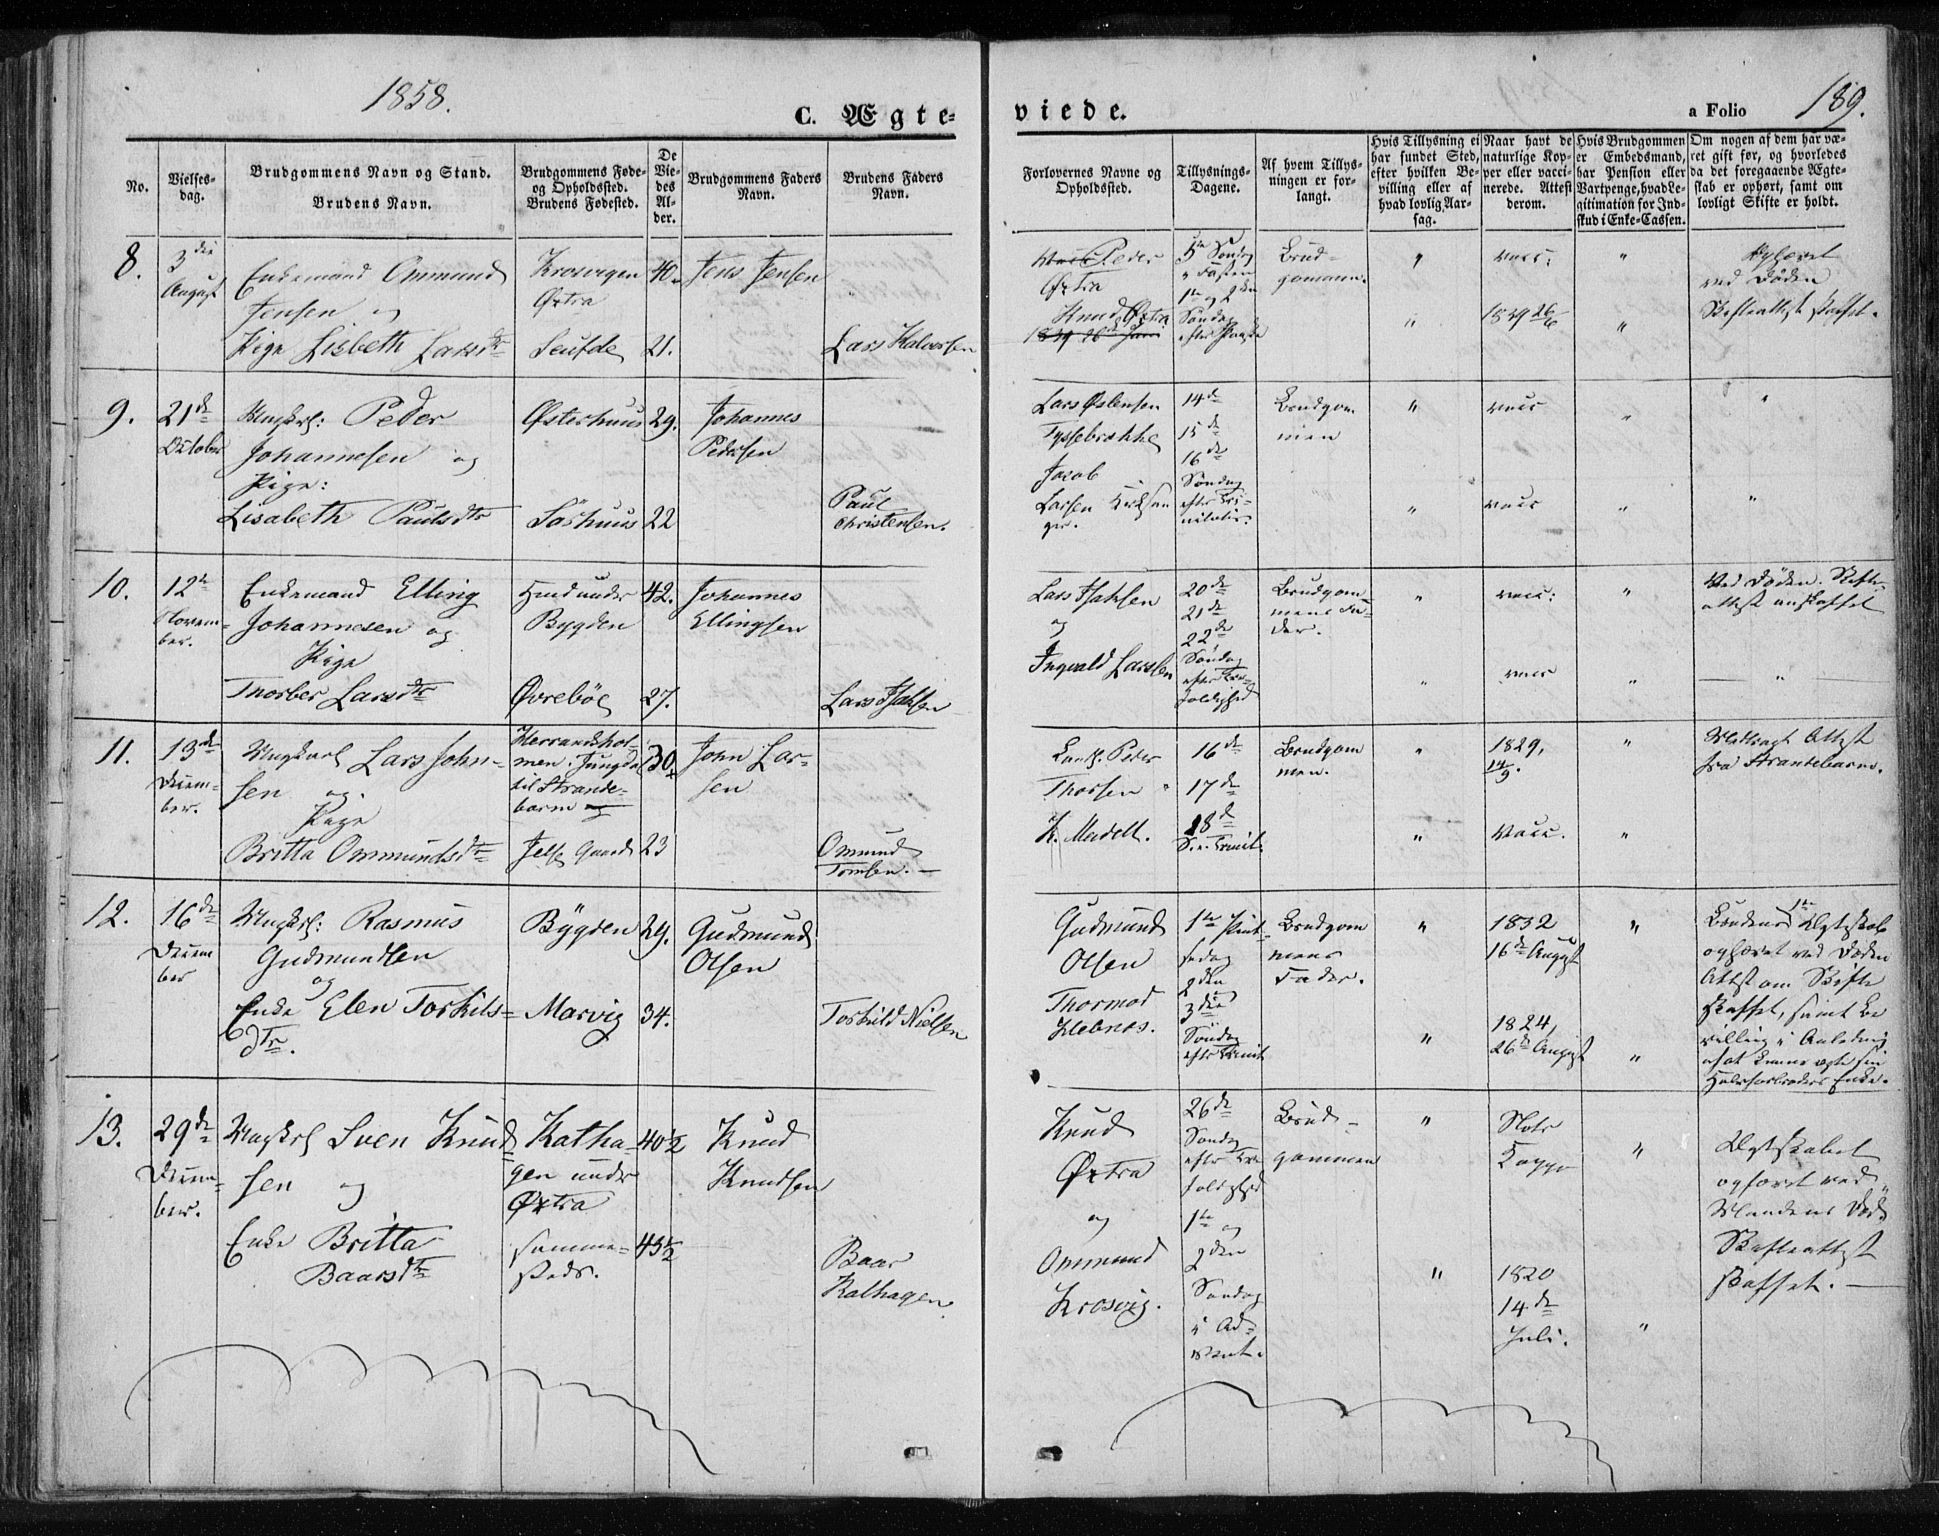 1858.
C. Ægte-
viede.
a Folio 189.
No.
Vielses-
dag.
Brudgommens Navn og Stand.
Brudens Navn.
Brudgommens Føde-
og Opholdssted.
Brudens Fødested.
De
Vie-
des
Al-
der.
Brudgommens Faders
Navn.
Brudens Faders
Navn.
Forlovernes Navne og
Opholdssted.
Tillysnings-
Dagene.
Af hvem Tillys-
ningen er for-
langt.
Hvis Tillysning ei
har fundet Sted,
efter hvilken Be-
villing eller af
hvad lovlig Aar-
sag.
Naar havt de
naturlige Kop-
per eller vacci-
nerede. Attest
derom.
Hvis Brudgommen
er Embedsmand,
har Pension eller
Vartpenge, hvad Le-
gitimation for Ind-
skud i Enke-Cassen.
Om nogen af dem har væ-
ret gift før, og hvorledes
da det foregaaende Ægte-
skab er ophørt, samt om
lovligt Skifte er holdt.
8.
3die
August
Enkemand Ommund
Jensen og
Pige Lisbeth Larsdtr
Krosvigen
Øxtra
40.
21.
Jens Jensen
Lars Halvorsen
Peder
Øxtra
Knud Øxtra
1839 26de Juni
5te Søndag
i Fasten
1te og 2den
Søndag
efter Paaske
Brud-
gommen.
"
vacc:
"
Ophævet
ved Døden
"
1839 26/6
"
Skifteattest skaffet.
9.
21de
October
Ungkrl: Peder
Johannesen og
Pige:
Lisabeth Paulsdtr
Østerhuus
Sørhuus
29.
22
Johannes
Pedersen
Paul
Christensen.
Lars Østensen
Tyssebrække
Jacob
Larsen
14de
15de
16de
Søndag
efter Tri-
nitatis.
Brudgom
men
"
vacc
"
"
"
vacc
"
"
10.
12te
Novem-
ber.
Enkemand Elling
Johannesen og
Pige
Thorber Larsdtr
Bygden
Øvrebøe
42.
27.
Johannes
Ellingsen
Lars
og
Ingvald Larssen
20de
21de
22de
Søndag
efter Tre-
foldighed
Brudgom
mens Fa-
der.
"
vacc:
"
Ved Døden. Skifte-
attest anskaffet
"
vacc
"
"
11.
13de
Decem-
ber.
Ungkarl Lars John-
sen og
Pige
Britta Ommundsdtr
Herrandshol-
men
til Strande-
barm
Jelse Gaard
30
23
John Lar-
sen
Omund
Tomsen.
Peder
Thorsen
16de
17de
18de
S. e. Trinit.
Brudgom
men.
"
1829,
14/9.
"
Attest
fra Strandebarm.
"
Vacc.
"
12.
16de
Decem
ber
Ungkrl: Rasmus
Gudmundsen
og
Enke Elen Torkils-
dtr.
Bygden
Marvig
29.
34.
Gudmund
Olsen
Torkild Nielsen
Gudmund
Olsen
Thormod
Hebnes.
1te Pint-
sedag
2den
3die
Søndag
efter Trinit
Brudgom
mens
Fader.
"
1832
16de August
"
Brudens 1te Ægteskab
ophævet ved Døden
Attest om Skifte
skaffet, samt Be
villing i Anledning
"
1824,
26de August
"
Enke.
13.
29de
Decem-
ber.
Ungkrl Sven Knud-
sen og
Enke Britta
Baarsdtr
Katha-
gen under
Øxtra
samme-
steds.
40 1/2
45 1/2
Knud
Knudsen
Baar
Kathagen
Knud
Øxtra
og
Ommund
Krosvig.
26de
Søndag
efter Tre
foldighed
1te og
2den
Søndag
i Ad-
vent.
Brud-
gommen
"
Kopper
"
Ægteskabet
ophævet ved
Mandens Død.
Skifteattest
skaffet.
"
1820
14de
Juli.
"